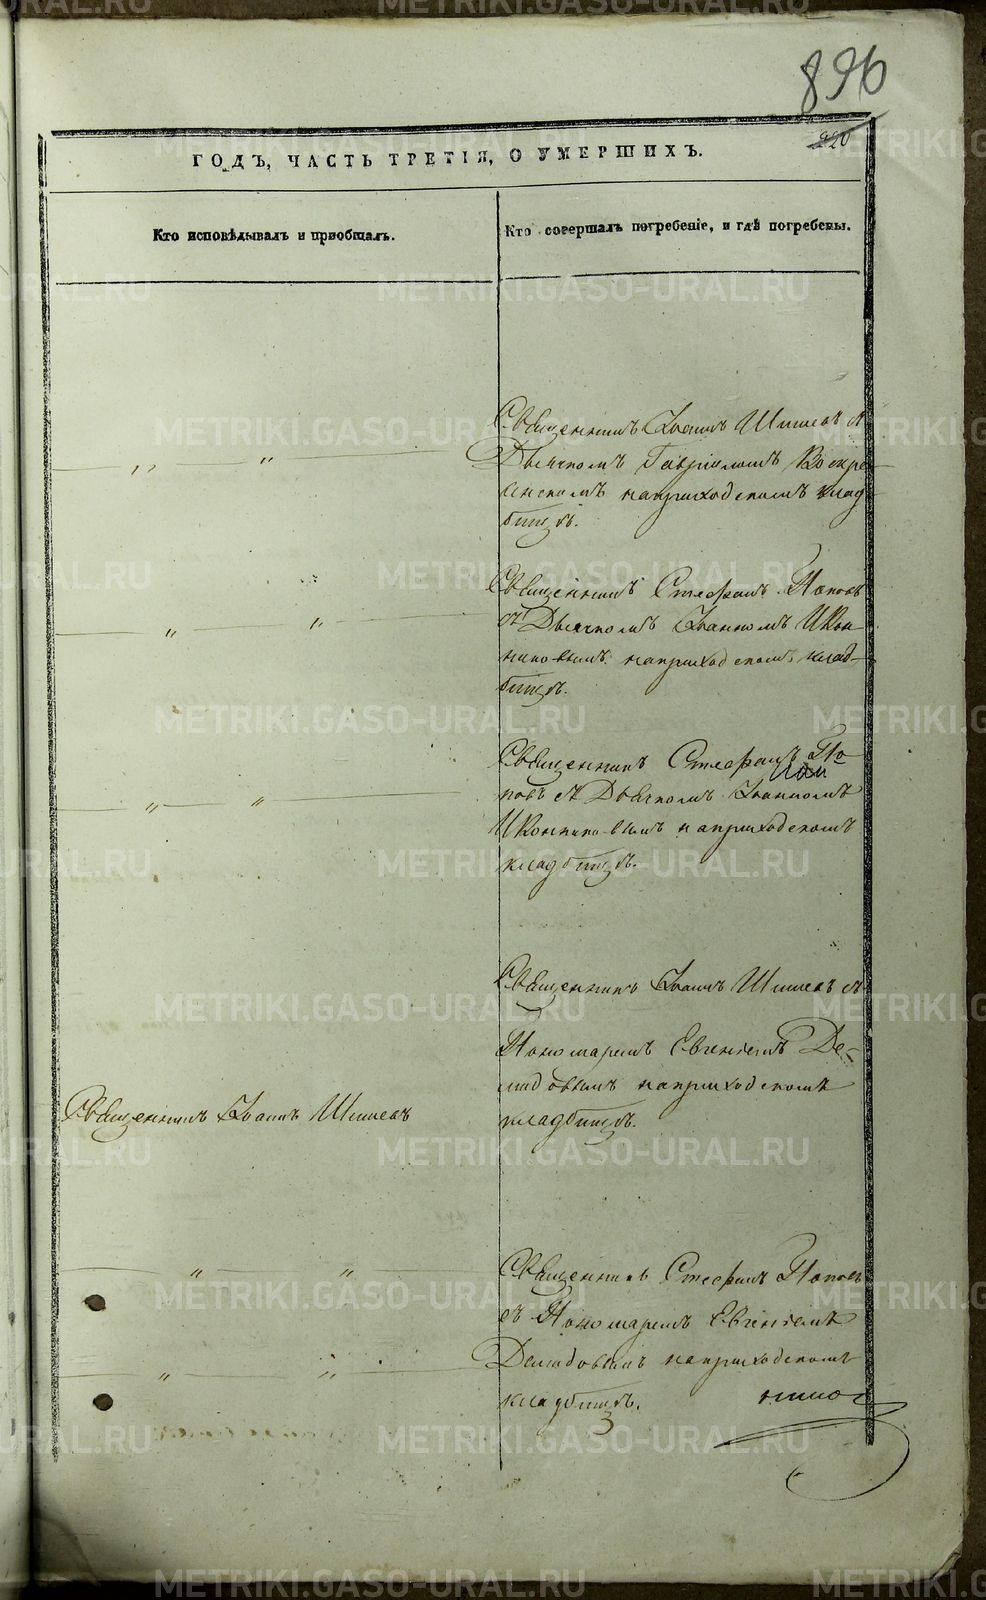 896
220
ГОДЪ, ЧАСТЬ ТРЕТІЯ, О УМЕРШИХЪ.
Кто исповѣдывалъ и пріобщалъ.
Кто совершалъ погребеніе, и гдѣ погребены.
Священникъ Іоаннъ Шишевъ съ
Дьячкомъ Гавріиломъ Воскре-
сенскимъ на приходскомъ клад-
бищѣ.
Священникъ Стефанъ Поповъ
съ Дьячкомъ Іоанномъ Икон-
никовымъ на приходскомъ клад-
бищѣ.
Священникъ Стефанъ По-
повъ съ Дьячкомъ Іоанномъ
Иконниковымъ на приходскомъ
кладбищѣ.
Священникъ Іоаннъ Шишевъ съ
Пономаремъ Евгеніемъ Де-
мидовымъ на приходскомъ
кладбищѣ.
Священникъ Іоаннъ Шишевъ
Священникъ Стефанъ Поповъ
съ Пономаремъ Евгеніемъ
Демидовымъ на приходскомъ
кладбищѣ.
METRIKI.GASO-URAL.RU